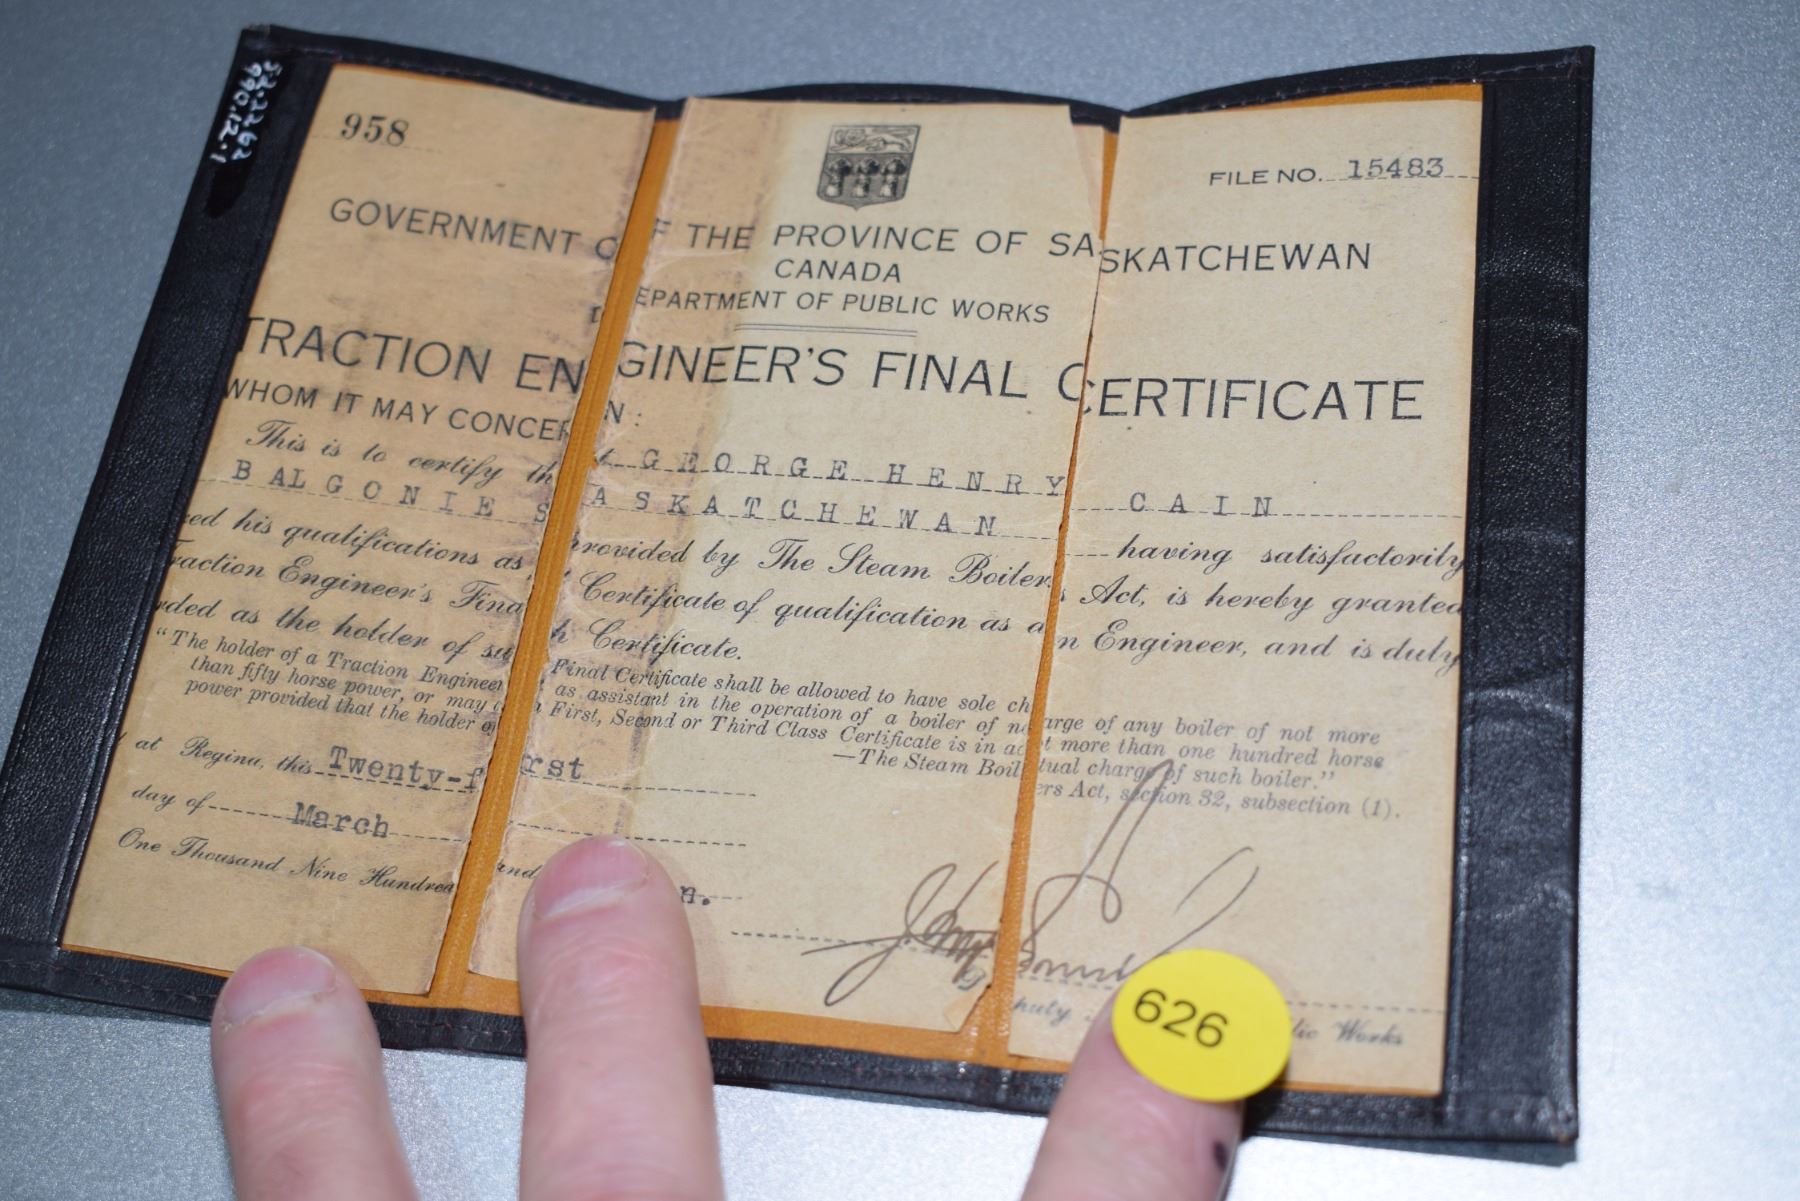 52.2262
990.12.1
958
FILE NO. 15483
GOVERNMENT OF THE PROVINCE OF SASKATCHEWAN
CANADA
DEPARTMENT OF PUBLIC WORKS
TRACTION ENGINEER'S FINAL CERTIFICATE
WHOM IT MAY CONCERN:
This is to certify that GEORGE HENRY CAIN
BALGONIE SASKATCHEWAN having satisfactorily
his qualifications as provided by The Steam Boilers Act, is hereby granted
Traction Engineer's Final Certificate of qualification as an Engineer, and is duly
as the holder of such Certificate.
"The holder of a Traction Engineer Final Certificate shall be allowed to have sole charge of any boiler of not more
than fifty horse power, or may as assistant in the operation of a boiler of not more than one hundred horse
power provided that the holder of a First, Second or Third Class Certificate is in actual charge of such boiler."
—The Steam Boilers Act, section 32, subsection (1).
at Regina, this Twenty-first
day of March
One Thousand Nine Hundred and n.
Works
626